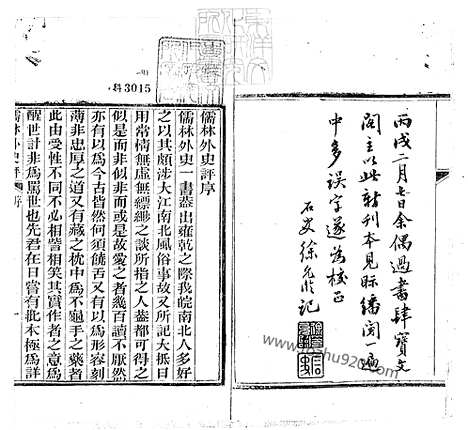 丙戌二月七日余偶過書肆寶文
閣主以此新刊本見眎繙閱一過
中多誤字遂為校正
石史徐允臨記
科3015
儒林外史評序
儒林外史一書蓋出雍乾之際我皖南北人多好
之以其頗涉大江南北風俗事故又所記大抵日
用常情無虛無縹緲之談所指之人蓋都可得之
似是而非似非而或是故愛之者幾百讀不厭然
亦有以為今古皆然何須饒舌又有以為形容刻
薄非忠厚之道又有藏之枕中為不龜手之藥者
此由受性不同不必相訾相笑其實作者之意為
醒世計非為罵世也先君在日嘗有批本極為詳
儒林外史評
序
一